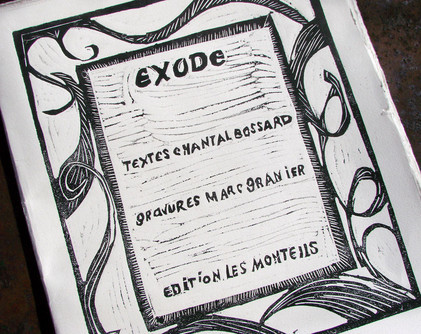 EXODe
TEXTES CHANTAL BOSSARD
GRAVURES MARC GRANIER
EDITION LES MONTEILS